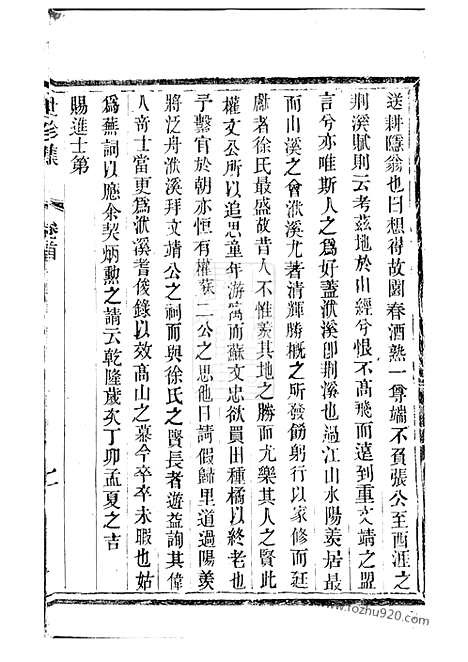 送耕隱翁也曰想得故園春酒熟一尊端不負張公至西涯之
荆溪賦則云考茲地於山經兮恨不高飛而遠到重文靖之盟
言兮亦唯斯人之爲好蓋洑溪卽荆溪也過江山水陽羨居最
而山溪之會洑溪尤著清輝勝概之所發飭躬行以家修而廷
獻者徐氏最盛故昔人不惟羨其地之勝而尤樂其人之賢此
權文公所以追思童年游篤而蘇文忠欲買田種橘以終老也
予繫官於朝亦恒有權蘇二公之思他日請假歸里道過陽羨
將泛舟洑溪拜文靖公之祠而與徐氏之賢長者遊益詢其偉
人奇士當更爲洑溪耆俊錄以效高山之慕今卒卒未暇也姑
爲蕪詞以應余契炳勲之請云乾隆歲次丁卯孟夏之吉
賜進士第
世彡集
卷首
www.fozhu920.com